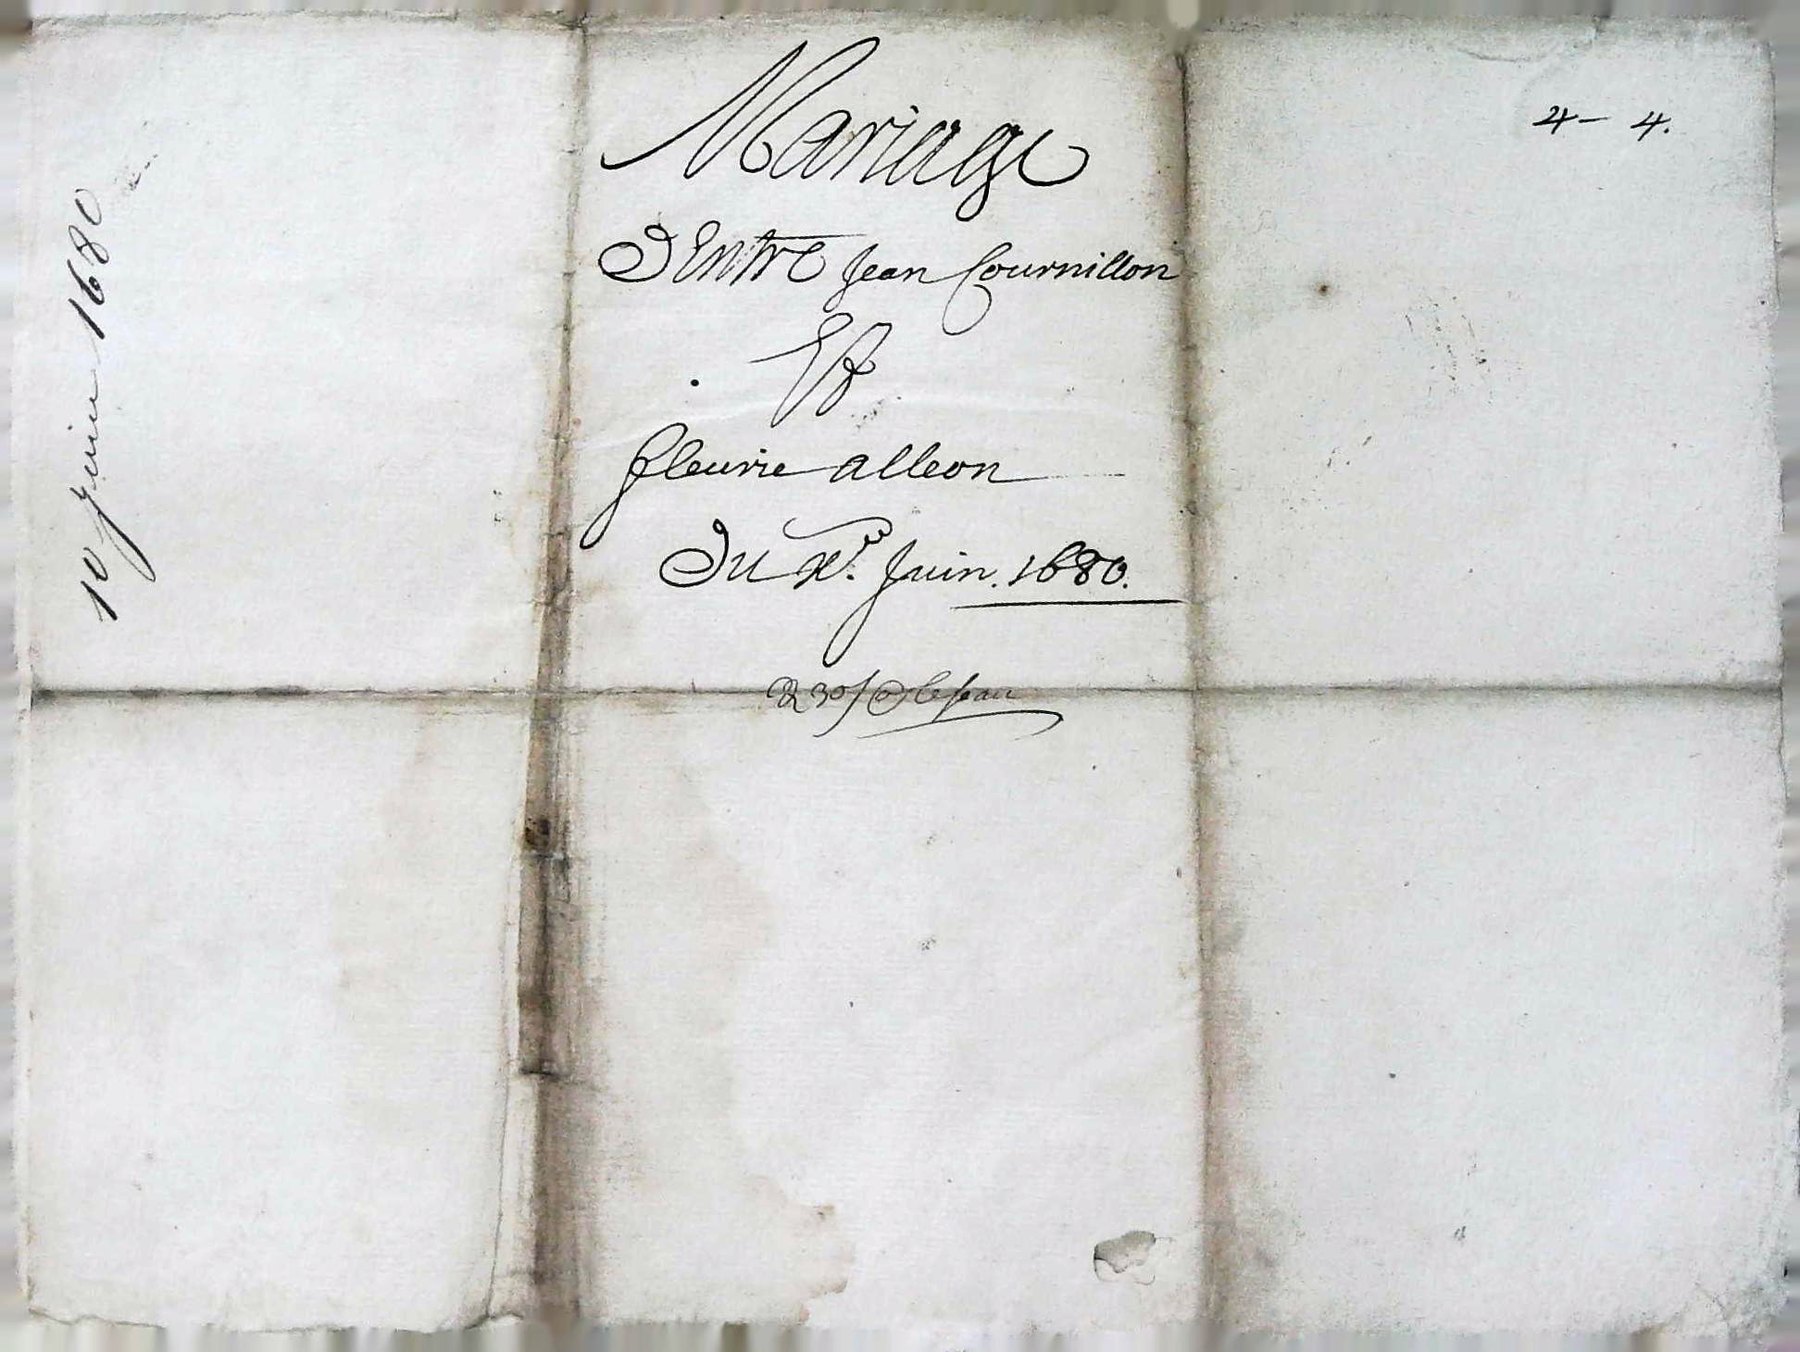 10 juin 1680
Mariage
D'Entre Jean Cournillon
Et
fleurie alleon
Du xe. Juin. 1680.
4 - 4.